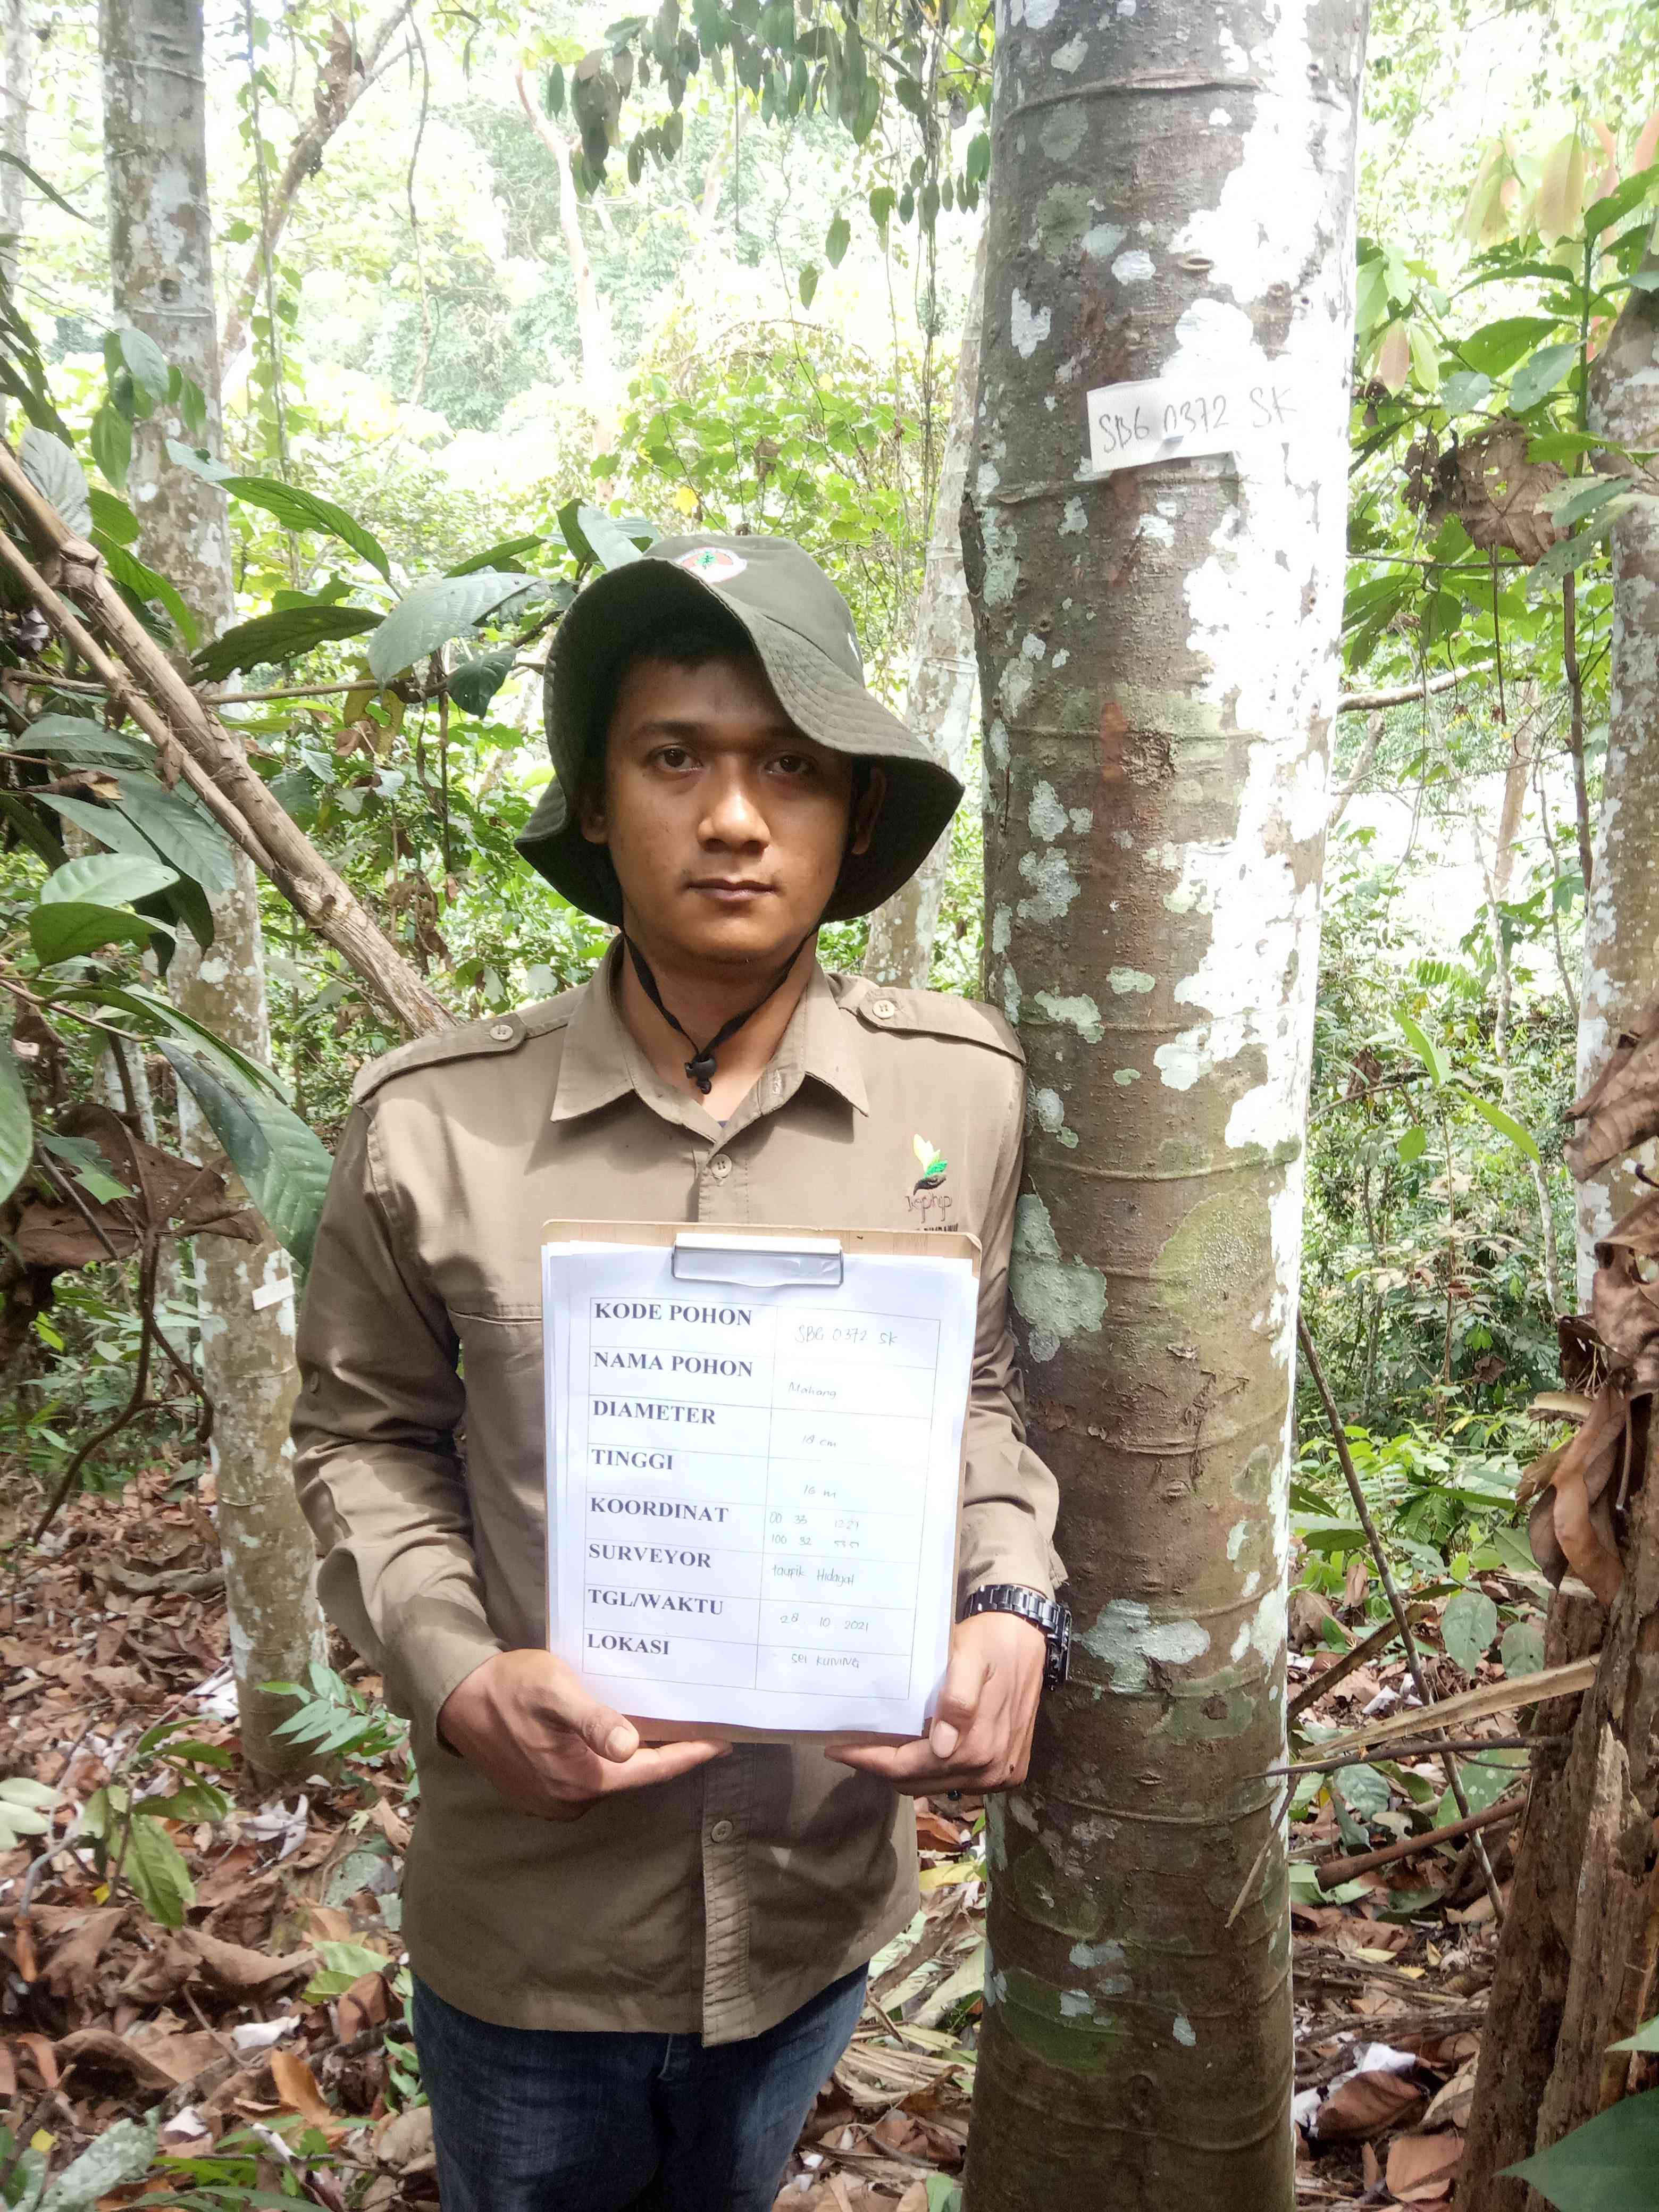 SBG 0372 SK
KODE POHON SBG 0372 SK
NAMA POHON Maliang
DIAMETER 18 cm
TINGGI 16 m
KOORDINAT 00 33
100 32
SURVEYOR taupik Hidayat
TGL/WAKTU 28 10 2021
LOKASI SEI KUNING